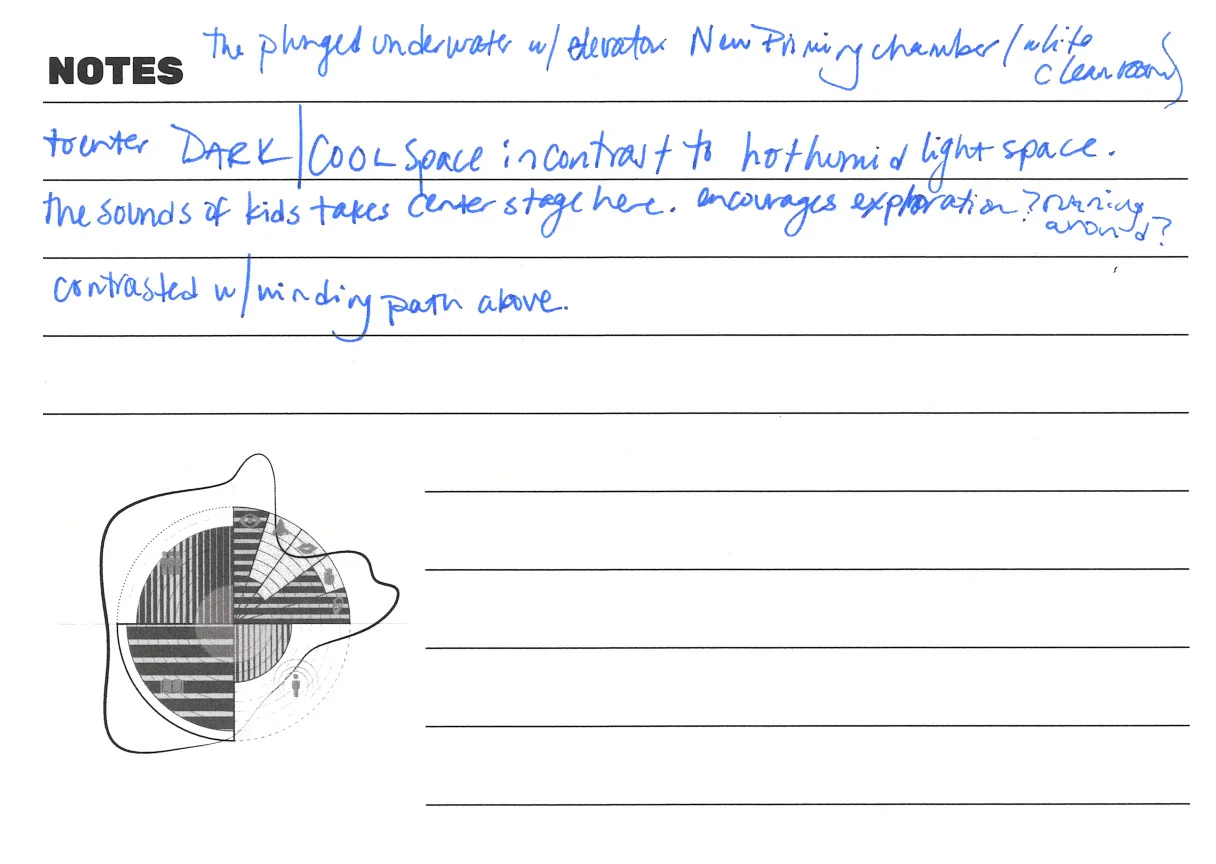 the plunged underwater w/ elevator New Priming chamber/(white
clean room)
NOTES
to enter DARK/COOL space in contrast to hot humid light space.
the sounds of kids takes center stage here. encourages exploration? running
around?
contrasted w/ winding path above.